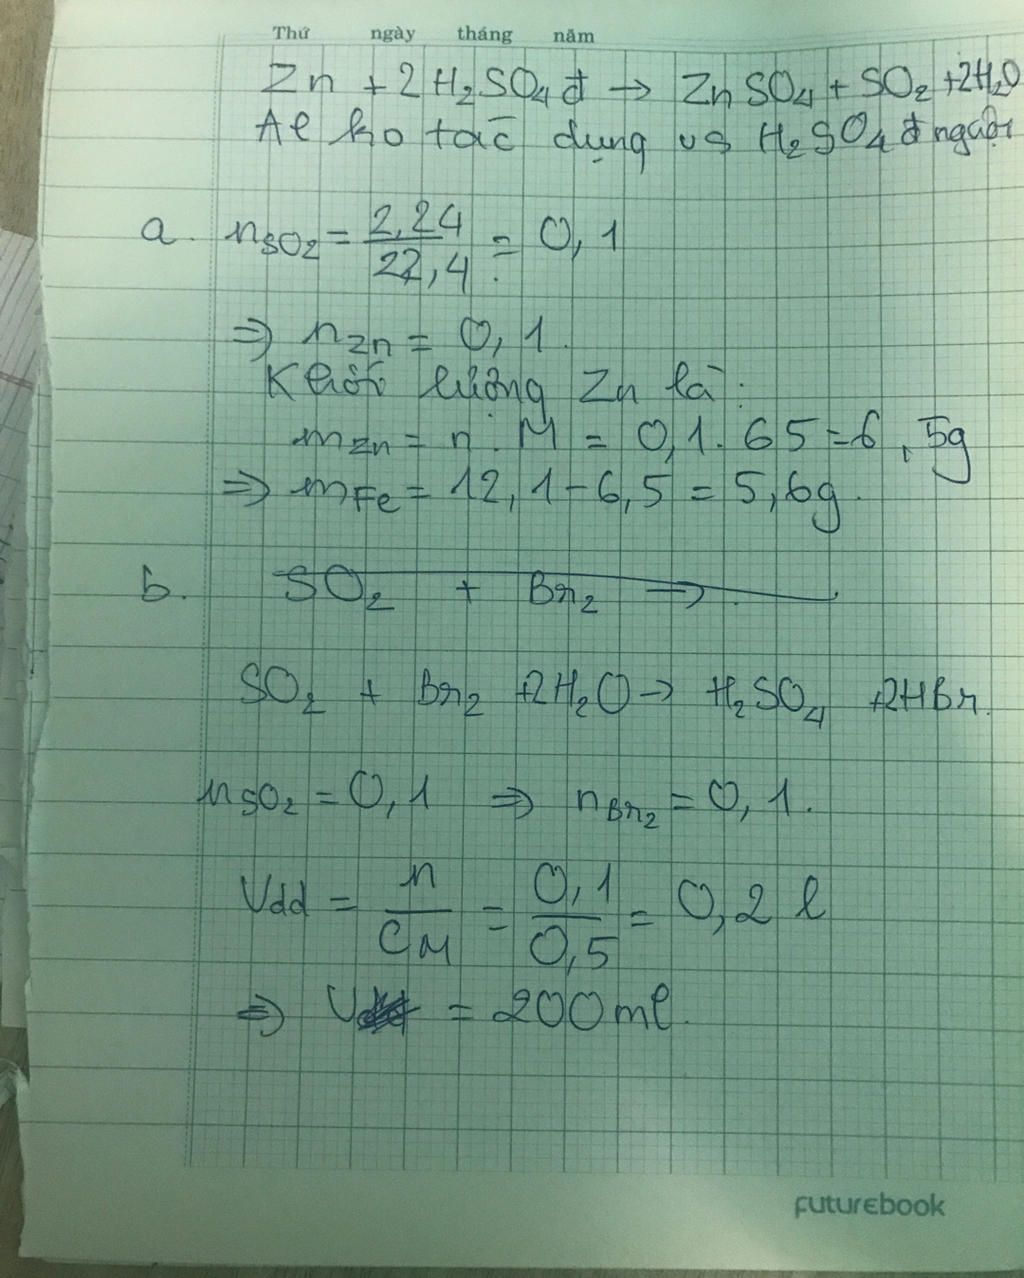 Thứ ngày tháng năm
Zn + 2H₂SO₄đ → ZnSO₄ + SO₂ + 2H₂O
Al ko tác dụng vs H₂SO₄ đ nguội
a. nSO₂ = 2,24 / 22,4 = 0,1
⇒ nZn = 0,1.
Khối lượng Zn là:
mZn = n . M = 0,1 . 65 = 6,5g
⇒ mFe = 12,1 - 6,5 = 5,6g.
b. SO₂ + Br₂ → .
SO₂ + Br₂ + 2H₂O → H₂SO₄ + 2HBr.
nSO₂ = 0,1 ⇒ nBr₂ = 0,1.
Vdd = n / CM = 0,1 / 0,5 = 0,2 l
⇒ V = 200ml.
futurebook